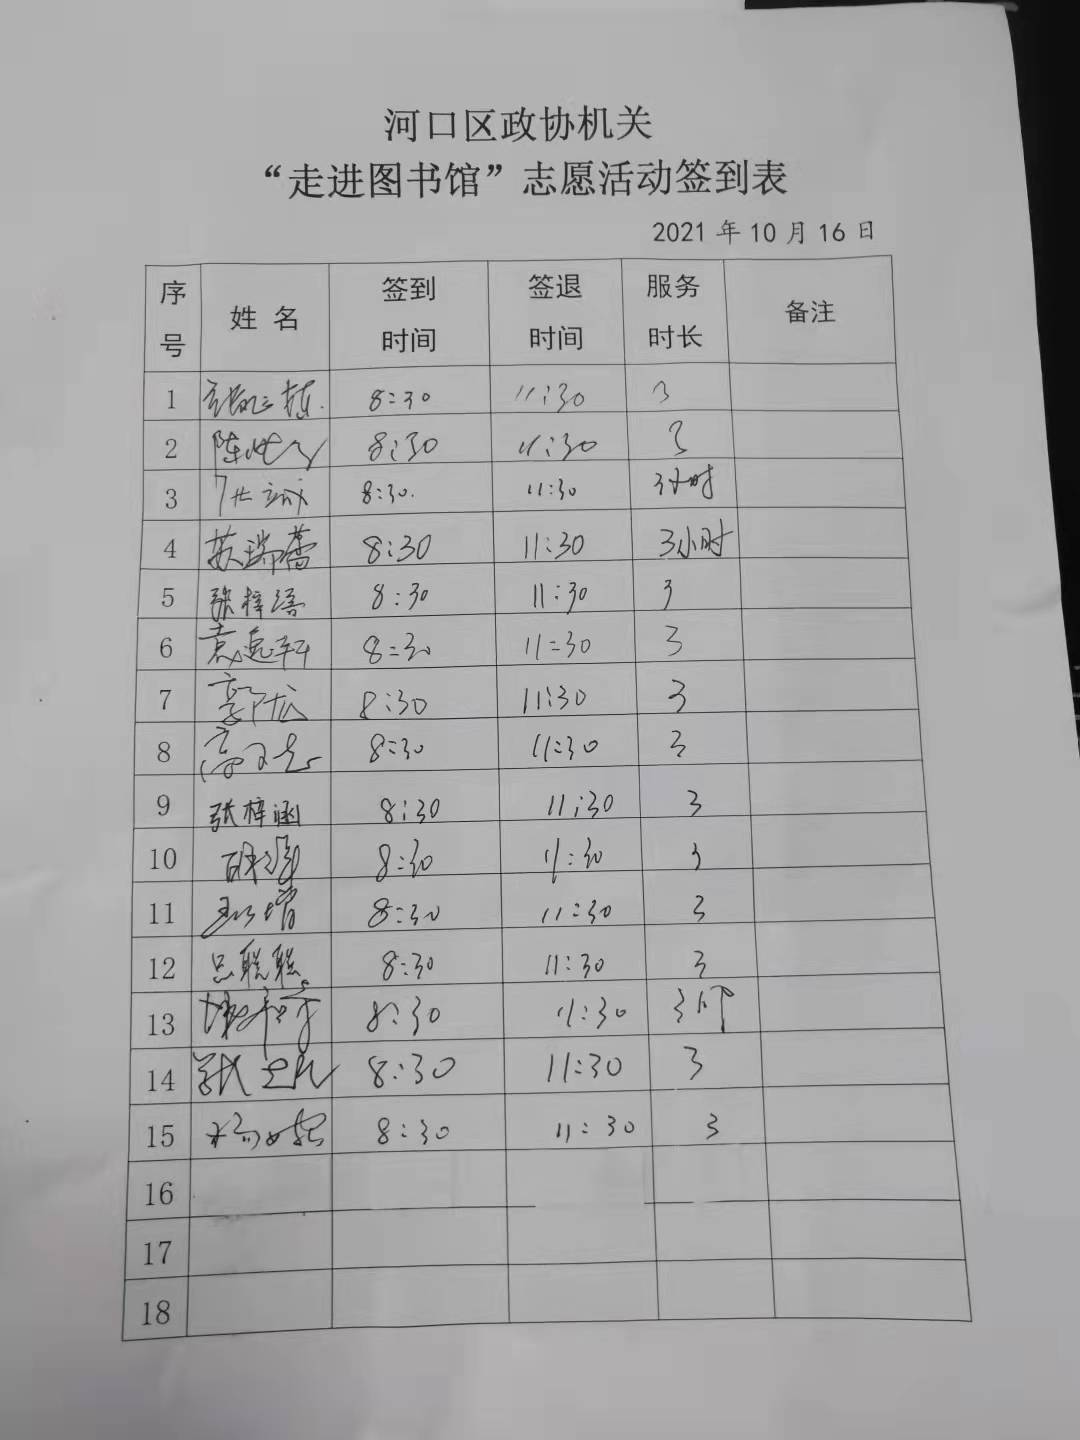 河口区政协机关
“走进图书馆”志愿活动签到表
2021 年 10 月 16 日
序号 姓 名 签到时间 签退时间 服务时长 备注
1 8:30 11:30 3
2 8:30 11:30 3
3 8:30. 11:30 3小时
4 苏瑞蕾 8:30 11:30 3小时
5 张梓 8:30 11:30 3
6 8:30 11:30 3
7 8:30 11:30 3
8 8:30 11:30 3
9 张梓涵 8:30 11:30 3
10 8:30 11:30 3
11 8:30 11:30 3
12 吕聪聪 8:30 11:30 3
13 8:30 11:30 3
14 8:30 11:30 3
15 8:30 11:30 3
16
17
18